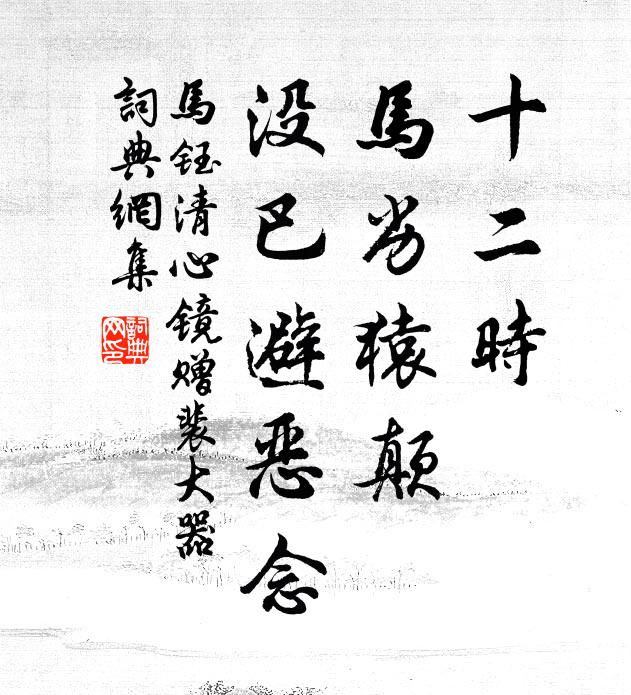 十二時
馬劣猿顛
没巴避恶念
馬鈺清心镜赠裴大器
詞典網集
詞典網印